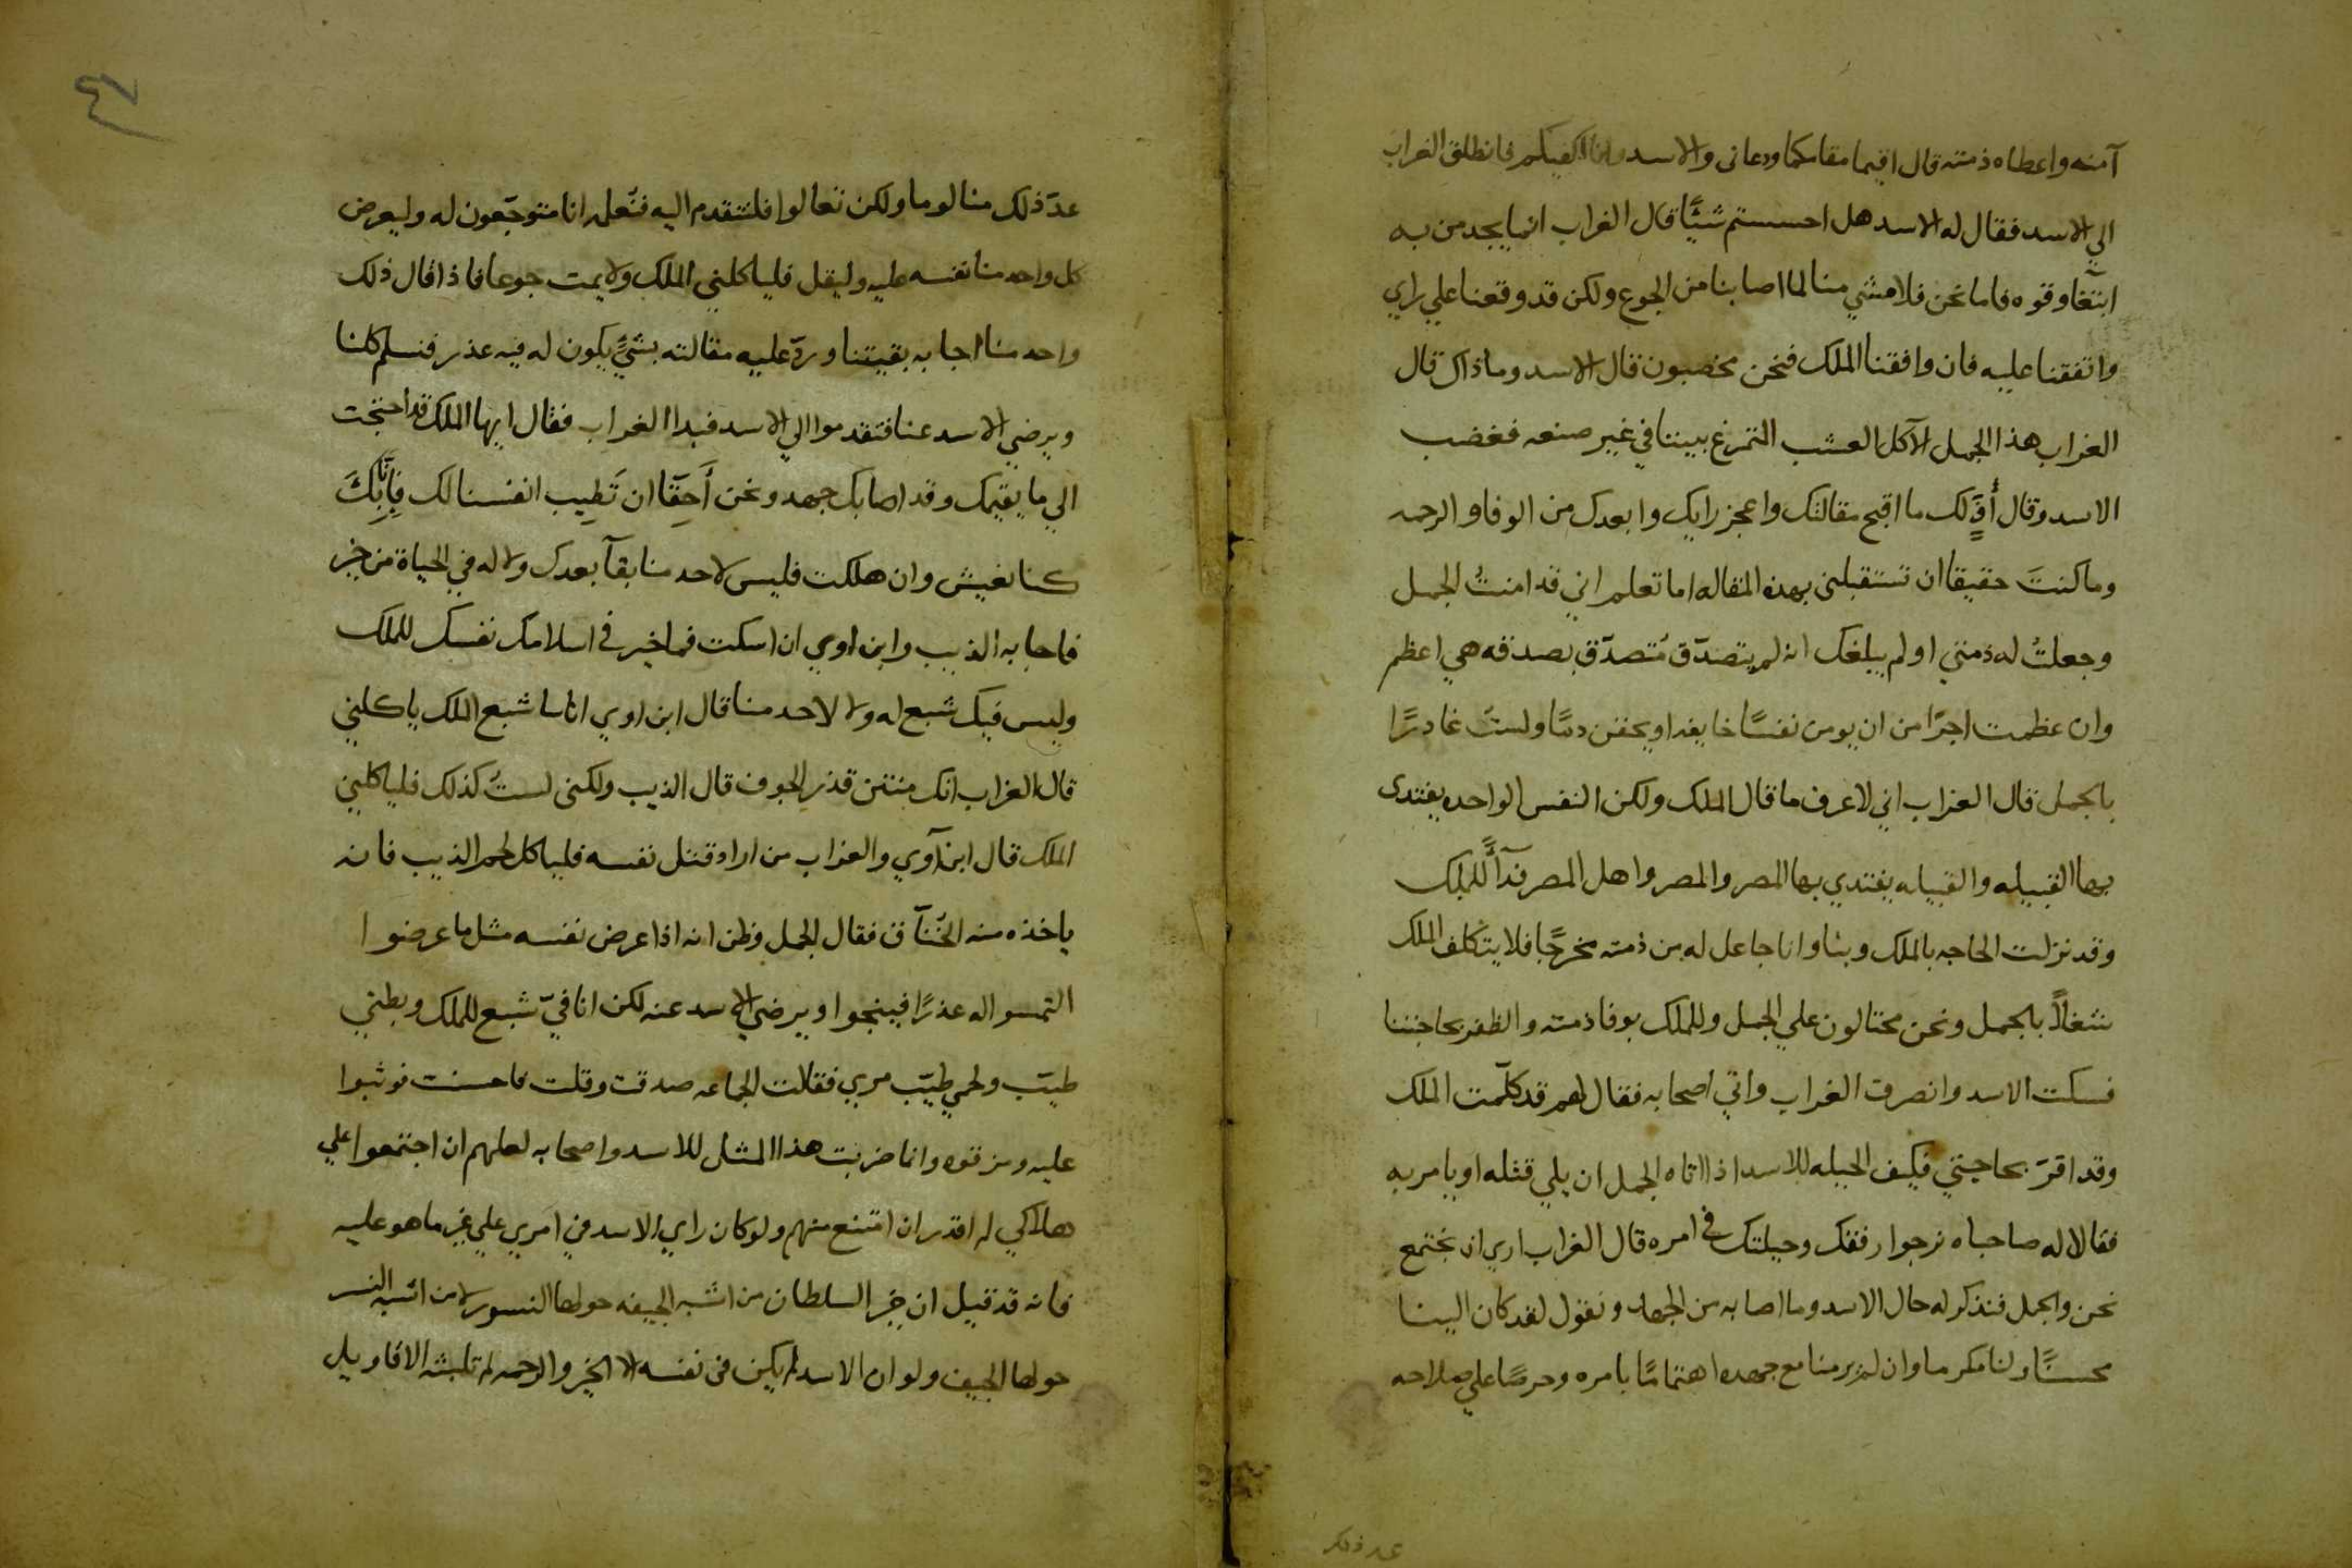 آمنه واعطاه ذمته قال اقيما مقامكما ودعانى والاسد فانطلق الغراب
الي الاسد فقال له الاسد هل احسستم شيًّا قال الغراب انما يجد من به
ابتغآ وقوه فاما نحن فلا مشي منا لما اصابنا من الجوع ولكن قد وقعنا علي راي
واتفقنا عليه فان وافقنا الملك فنحن مخصبون قال الاسد وما ذاك قال
الغراب هذا الجمل الآكل العشب المتمرغ بيننا في غير صنعه فغضب
الاسد وقال أُفٍّ لك ما اقبح مقالتك واعجز رايك وابعدك من الوفا والرحمه
وما كنتَ حقيقا ان تستقبلنى بهذه المقاله اما تعلم اني قد امنتُ الجمل
وجعلتُ له ذمتي او لم يبلغك انه لم يتصدّق مُتصدّق بصدقه هي اعظم
وان عظمت اجرًا من ان يومن نفسًا خايفه او يحقن دمًا ولستُ غادرًا
بالجمل قال الغراب اني لاعرف ما قال الملك ولكن النفس الواحده يفتدى
بها القبيله والقبيله يفتدي بها المصر والمصر واهل المصر فدآًَ للملك
وقد نزلت الحاجه بالملك وبنا وانا جاعل له من ذمته مخرجًا فلا يتكلف الملك
شغلاً بالجمل ونحن محتالون علي الجمل وللملك بوفا ذمته والظفر بحاجتنا
فسكت الاسد وانصرف الغراب واتي اصحابه فقال لهم قد كلّمت الملك
وقد اقرّ بحاجتي فكيف الحيله للاسد اذا اتاه الجمل ان يلي قتله او يامر به
فقالا له صاحباه نرجوا رفقك وحيلتك في امره قال الغراب اري ان نجتمع
نحن والجمل فنذكر له حال الاسد وما اصابه من الجهد ونقول لقد كان الينا
محسنًا ولنا مكرما وان لم ير منا مع جهده اهتمامًا بامره وحرصًا علي صلاحه
عد ذلك
٤٧
عدّ ذلك منا لوما ولكن تعالوا فلنتقدم اليه فنُعلمه انا متوجّعون له وليعرض
كل واحد منا نفسه عليه وليقل فلياكلني الملك ولا يمت جوعا فاذا قال ذلك
واحد منا اجابه بقيتنا وردّ عليه مقالته بشيٍّ يكون له فيه عذر فنسلم كلنا
ويرضي الاسد عنا فتقدموا الي الاسد فبدا الغراب فقال ايها الملك قد احتجت
الي ما يقيمك وقد اصابك جهد ونحن أَحِقّآ ان تَطِيب انفسنا لك فإنّا بِكَ
كنا نعيش وان هلكت فليس لاحد منا بقآ بعدك ولا له في الحياة من خير
فاجابه الذيب وابن اوي ان اسكت فما خير في اسلامك نفسك للملك
وليس فيك شبع له ولا لاحد منا قال ابن اوي انا شبع الملك ياكلني
قال الغراب انك منتن قذر الجوف قال الذيب ولكنى لستُ كذلك فلياكلني
الملك قال ابن آوي والغراب من اراد قتل نفسه فلياكل لحم الذيب فانه
ياخذه منه الخُنآق فقال الجمل وظن انه اذا عرض نفسه مثل ما عرضوا
التمسوا له عذرًا فينجوا ويرضي الاسد عنه لكن انا فيّ شبع للملك وبطني
طيّب ولحمي طيّب مري فقالت الجماعه صدقت وقلت فاحسنت فوثبوا
عليه ومزقوه وانما ضربت هذا المثل للاسد واصحابه لعلهم ان اجتمعوا علي
هلاكي لم اقدر ان امتنع منهم ولو كان راي الاسد في امري علي غير ما هو عليه
فانه قد قيل ان خير السلطان من اشبه الجيفه حولها النسور لا من اشبه النسر
حولها الجيف ولو ان الاسد لم يكن فى نفسه الا الخير والرحمه لم تلبثه الاقاويل